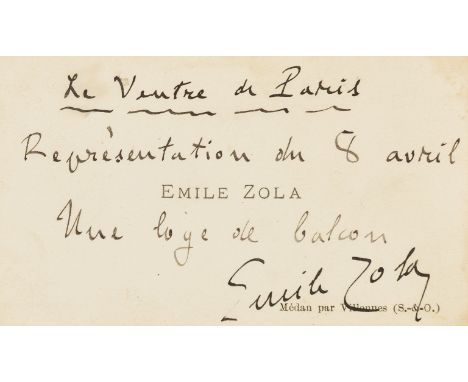 Le Ventre de Paris
Représentation du 8 avril
EMILE ZOLA
Une loge de balcon
Emile Zola
Médan par Villennes (S.-&-O.)